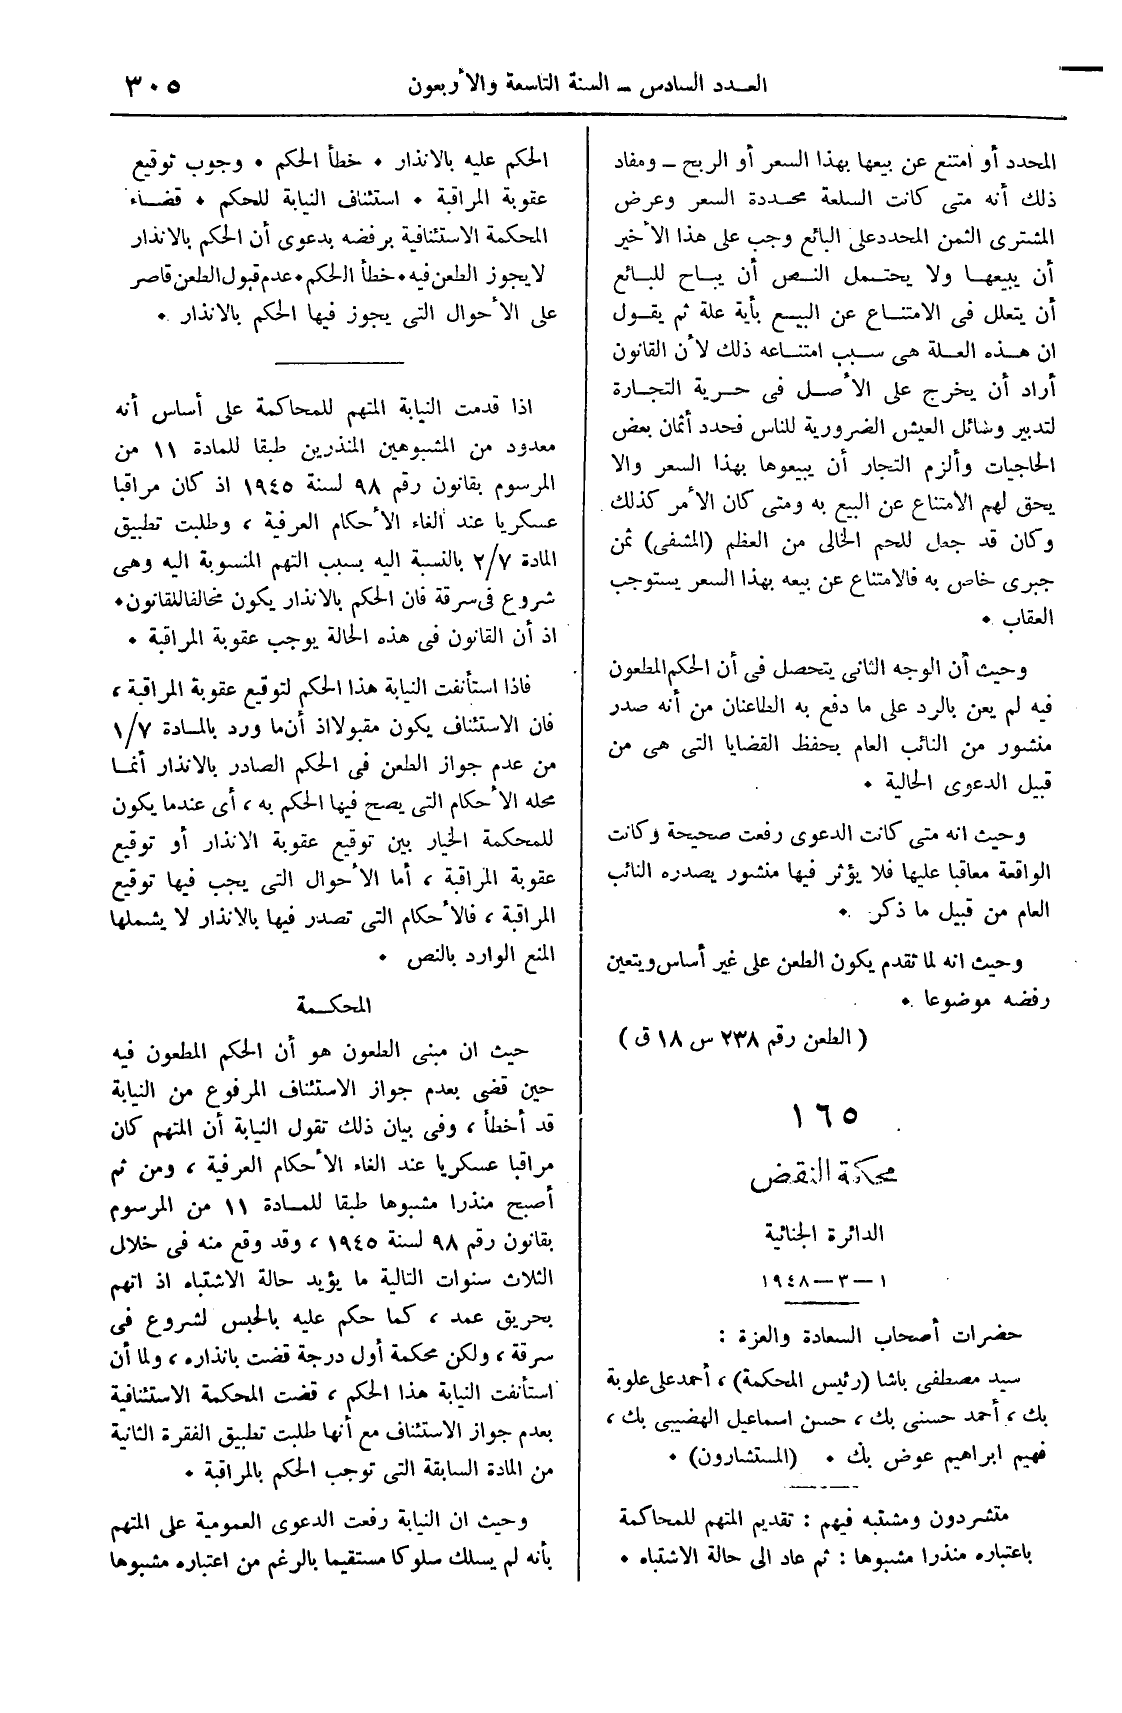 العدد السادس ــ السنة التاسعة والأربعون
٣٠٥
المحدد أو امتنع عن بيعها بهذا السعر أو الربح ــ ومفاد
ذلك أنه متى كانت السلعة محددة السعر وعرض
المشترى الثمن المحدد على البائع وجب على هذا الأخير
أن يبيعها ولا يحتمل النص أن يباح للبائع
أن يتعلل فى الامتناع عن البيع بأية علة ثم يقول
ان هذه العلة هى سبب امتناعه ذلك لأن القانون
أراد أن يخرج على الأصل فى حرية التجارة
لتدبير وسائل العيش الضرورية للناس فحدد أثمان بعض
الحاجيات وألزم التجار أن يبيعوها بهذا السعر والا
يحق لهم الامتناع عن البيع به ومتى كان الأمر كذلك
وكان قد جعل للحم الخالى من العظم (المشفى) ثمن
جبرى خاص به فالامتناع عن بيعه بهذا السعر يستوجب
العقاب .
وحيث أن الوجه الثانى يتحصل فى أن الحكم المطعون
فيه لم يعن بالرد على ما دفع به الطاعنان من أنه صدر
منشور من النائب العام بحفظ القضايا التى هى من
قبيل الدعوى الحالية .
وحيث انه متى كانت الدعوى رفعت صحيحة وكانت
الواقعة معاقبا عليها فلا يؤثر فيها منشور يصدره النائب
العام من قبيل ما ذكر .
وحيث انه لما تقدم يكون الطعن على غير أساس ويتعين
رفضه موضوعا .
( الطعن رقم ٢٣٨ س ١٨ ق )
١٦٥
محكمة النقض
الدائرة الجنائية
١ ــ ٣ ــ ١٩٤٨
حضرات أصحاب السعادة والعزة :
سيد مصطفى باشا (رئيس المحكمة) ، أحمد على علوبة
بك ، أحمد حسنى بك ، حسن اسماعيل الهضيبى بك ،
فهيم ابراهيم عوض بك . (المستشارون) .
متشردون ومشتبه فيهم : تقديم المتهم للمحاكمة
باعتباره منذرا مشبوها : ثم عاد الى حالة الاشتباه .
الحكم عليه بالانذار . خطأ الحكم . وجوب توقيع
عقوبة المراقبة . استئناف النيابة للحكم . قضاء
المحكمة الاستئنافية برفضه بدعوى أن الحكم بالانذار
لا يجوز الطعن فيه . خطأ الحكم . عدم قبول الطعن قاصر
على الأحوال التى يجوز فيها الحكم بالانذار .
اذا قدمت النيابة المتهم للمحاكمة على أساس أنه
معدود من المشبوهين المنذرين طبقا للمادة ١١ من
المرسوم بقانون رقم ٩٨ لسنة ١٩٤٥ اذ كان مراقبا
عسكريا عند الغاء الأحكام العرفية ، وطلبت تطبيق
المادة ٢/٧ بالنسبة اليه بسبب التهم المنسوبة اليه وهى
شروع فى سرقة فان الحكم بالانذار يكون مخالفا للقانون .
اذ أن القانون فى هذه الحالة يوجب عقوبة المراقبة .
فاذا استأنفت النيابة هذا الحكم لتوقيع عقوبة المراقبة ،
فان الاستئناف يكون مقبولا اذ أن ما ورد بالمادة ١/٧
من عدم جواز الطعن فى الحكم الصادر بالانذار أنما
محله الأحكام التى يصح فيها الحكم به ، أى عندما يكون
للمحكمة الخيار بين توقيع عقوبة الانذار أو توقيع
عقوبة المراقبة ، أما الأحوال التى يجب فيها توقيع
المراقبة ، فالأحكام التى تصدر فيها بالانذار لا يشملها
المنع الوارد بالنص .
المحكمة
حيث ان مبنى الطعون هو أن الحكم المطعون فيه
حين قضى بعدم جواز الاستئناف المرفوع من النيابة
قد أخطأ ، وفى بيان ذلك تقول النيابة أن المتهم كان
مراقبا عسكريا عند الغاء الأحكام العرفية ، ومن ثم
أصبح منذرا مشبوها طبقا للمادة ١١ من المرسوم
بقانون رقم ٩٨ لسنة ١٩٤٥ ، وقد وقع منه فى خلال
الثلاث سنوات التالية ما يؤيد حالة الاشتباه اذ اتهم
بحريق عمد ، كما حكم عليه بالحبس لشروع فى
سرقة ، ولكن محكمة أول درجة قضت بانذاره ، ولما أن
استأنفت النيابة هذا الحكم ، قضت المحكمة الاستئنافية
بعدم جواز الاستئناف مع أنها طلبت تطبيق الفقرة الثانية
من المادة السابقة التى توجب الحكم بالمراقبة .
وحيث ان النيابة رفعت الدعوى العمومية على المتهم
بأنه لم يسلك سلوكا مستقيما بالرغم من اعتباره مشبوها